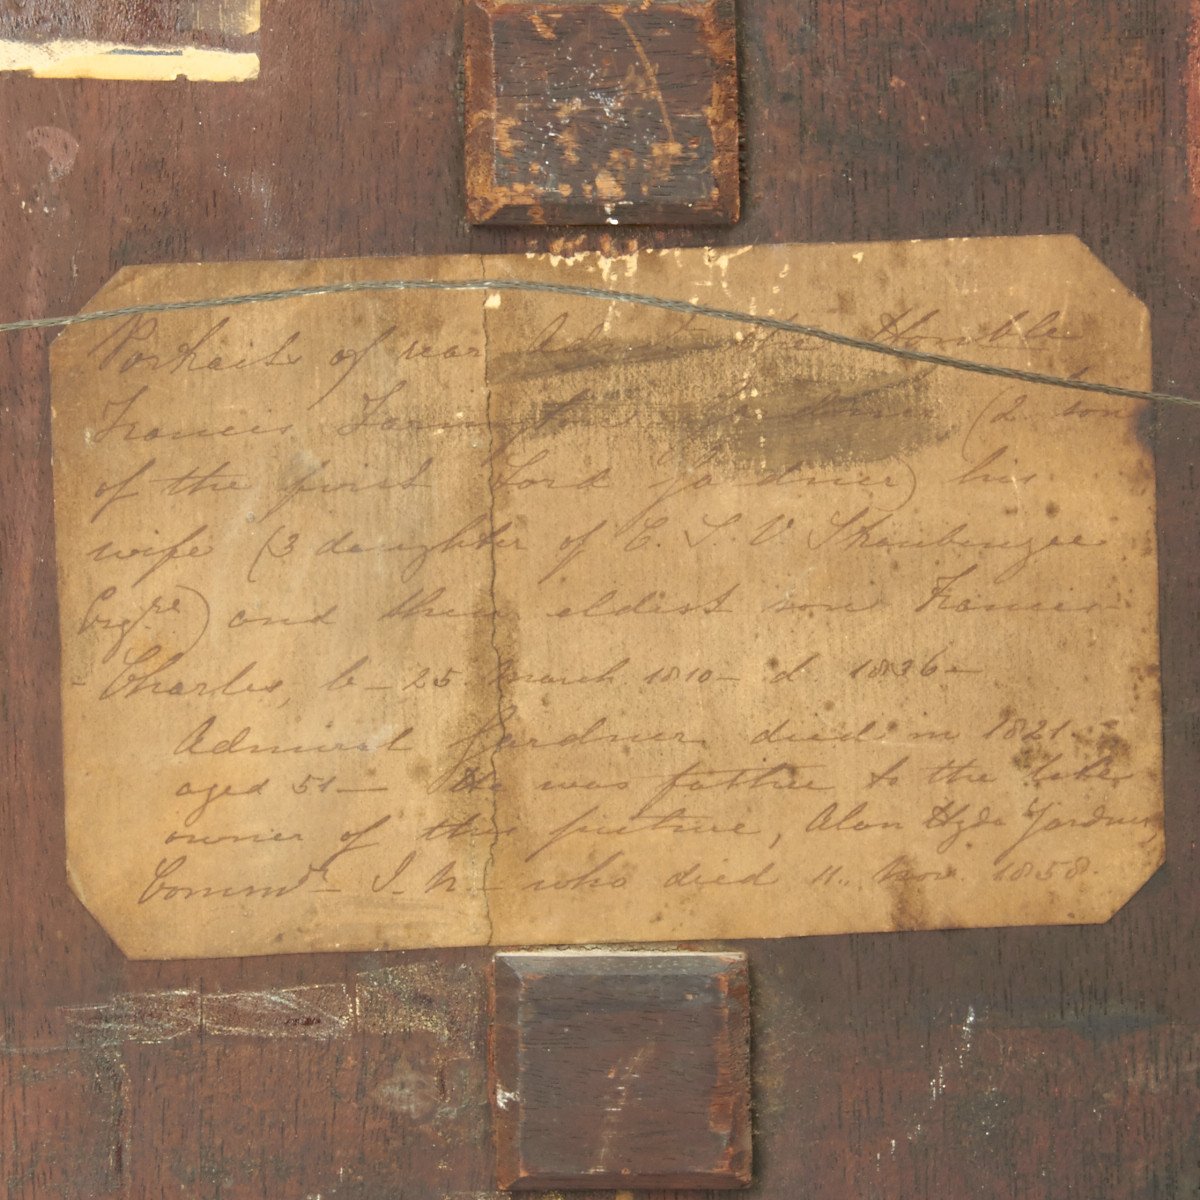 Portraits of rear Adm. the Honble
Francis Farington Gardner (2 son
of the first Lord Gardner) his
wife (3 daughter of C. S. V. Straubenzee
Esqre) and their eldest son Francis
Charles, b – 25 March 1810 – d. 1836 –
Admiral Gardner died in 1821 –
aged 51 – He was father to the late
owner of this picture, Alan Hyde Gardner
Commdr – I. N – who died 11. Nov. 1858.